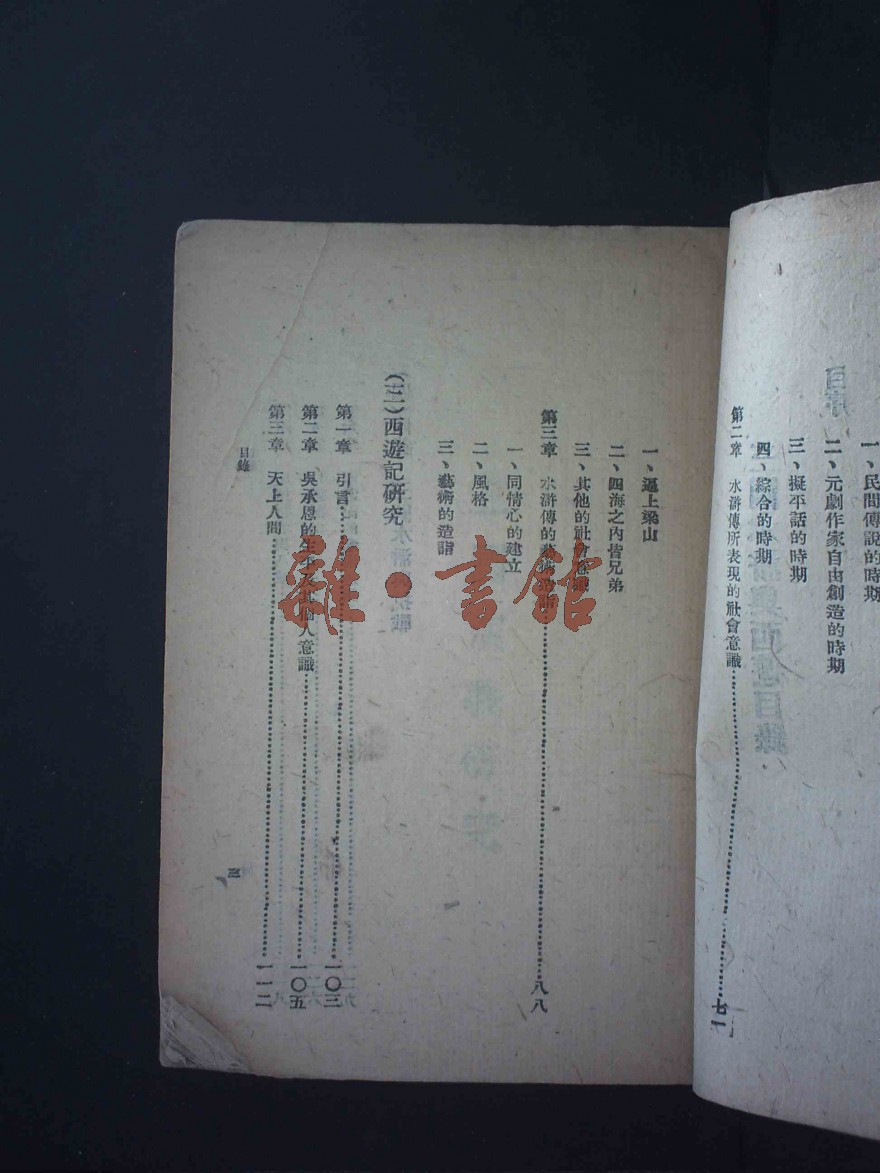 一、民間傳說的時期
二、元劇作家自由創造的時期
三、擬平話的時期
四、綜合的時期
第二章 水滸傳所表現的社會意識……七一
一、逼上梁山
二、四海之內皆兄弟
三、其他的社會意識
第三章 水滸傳的……八八
一、同情心的建立
二、風格
三、藝術的造詣
(三)西遊記研究
第一章 引言……一〇三
第二章 吳承恩的生平及其個人意識……一〇五
第三章 天上人間……一一二
目錄
三
雜·書館